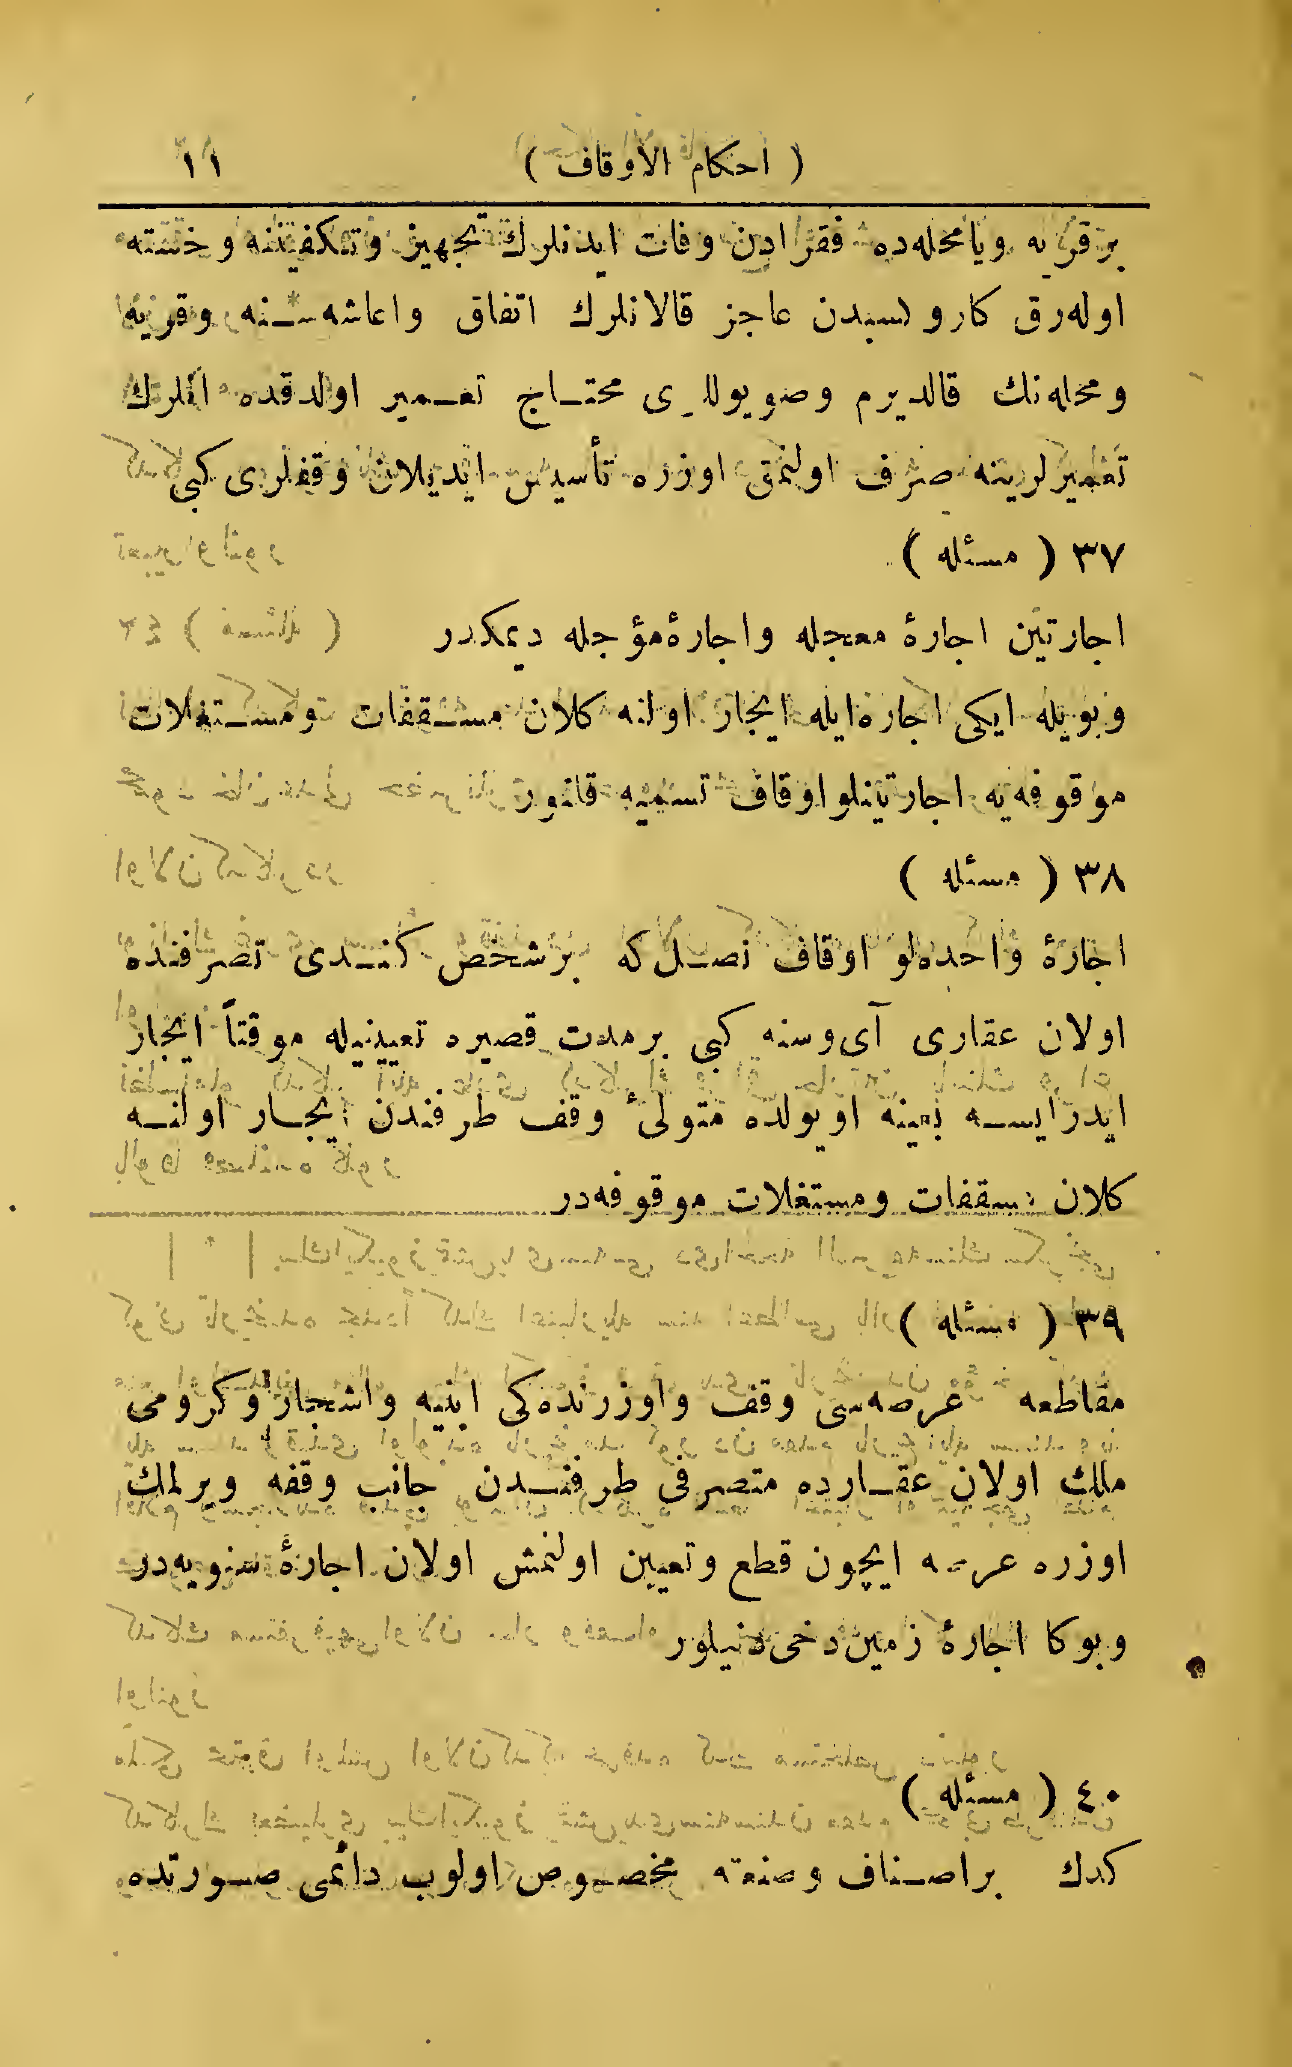 ( احكام الأوقاف ) ١١
برقریه ویامحله‌ده فقرادن وفات ایدنلرك تجهیز وتكفیننه وخسته
اوله‌رق كار وكسبدن عاجز قالانلرك انفاق واعاشه‌سنه وقریه
ومحله‌نك قالدیرم وصویوللری محتاج تعمیر اولدقده انلرك
تعمیرلرینه صرف اولنمق اوزره تأسیس ایدیلان وقفلری كبی
٣٧ ( مسئله )
اجارتین اجارهٔ معجله واجارهٔ مؤجله دیمكدر
وبویله ایكی اجاره‌ایله ایجار اولنه كلان مسقفات ومستغلات
موقوفه‌یه اجارتینلو اوقاف تسمیه قلنور
٣٨ ( مسئله )
اجارهٔ واحده‌لو اوقاف نصل‌كه برشخص كندی تصرفنده
اولان عقاری آی‌وسنه كبی برمدت قصیره تعیینیله موقتاً ایجار
ایدرایسه بعینه اویولده متولئ وقف طرفندن ایجار اولنه
كلان مسقفات ومستغلات موقوفه‌در
٣٩ ( مسئله )
مقاطعه عرصه‌سی وقف واوزرنده‌كی ابنیه واشجار وكرومی
ملك اولان عقارده متصرفی طرفندن جانب وقفه ویرلمك
اوزره عرصه ایچون قطع وتعیین اولنمش اولان اجارهٔ سنویه‌در
وبوكا اجارهٔ زمین‌دخی‌دنیلور
٤٠ ( مسئله )
كدك براصناف وصنعته مخصوص اولوب دائمی صورتده